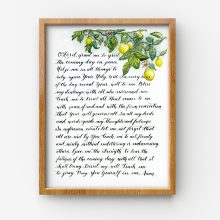 O Lord, grant me to greet
the coming day in peace
help me in all things to
rely upon Your Holy Will. In every hour
of the day reveal Your will to me. Bless
my dealings with all who surround me.
Teach me to treat all that comes to me
with peace of soul and with the firm conviction
that Your will governs all. In all my deeds
and words guide my thoughts and feelings.
In unforeseen events let me not forget that all
are sent by You. Teach me to act firmly
and wisely, without embittering or embarrassing
others. Give me the strength to bear the
fatigue of the coming day with all that it
shall bring. Direct my will. Teach me
to pray. Pray You Yourself in me. Amen.